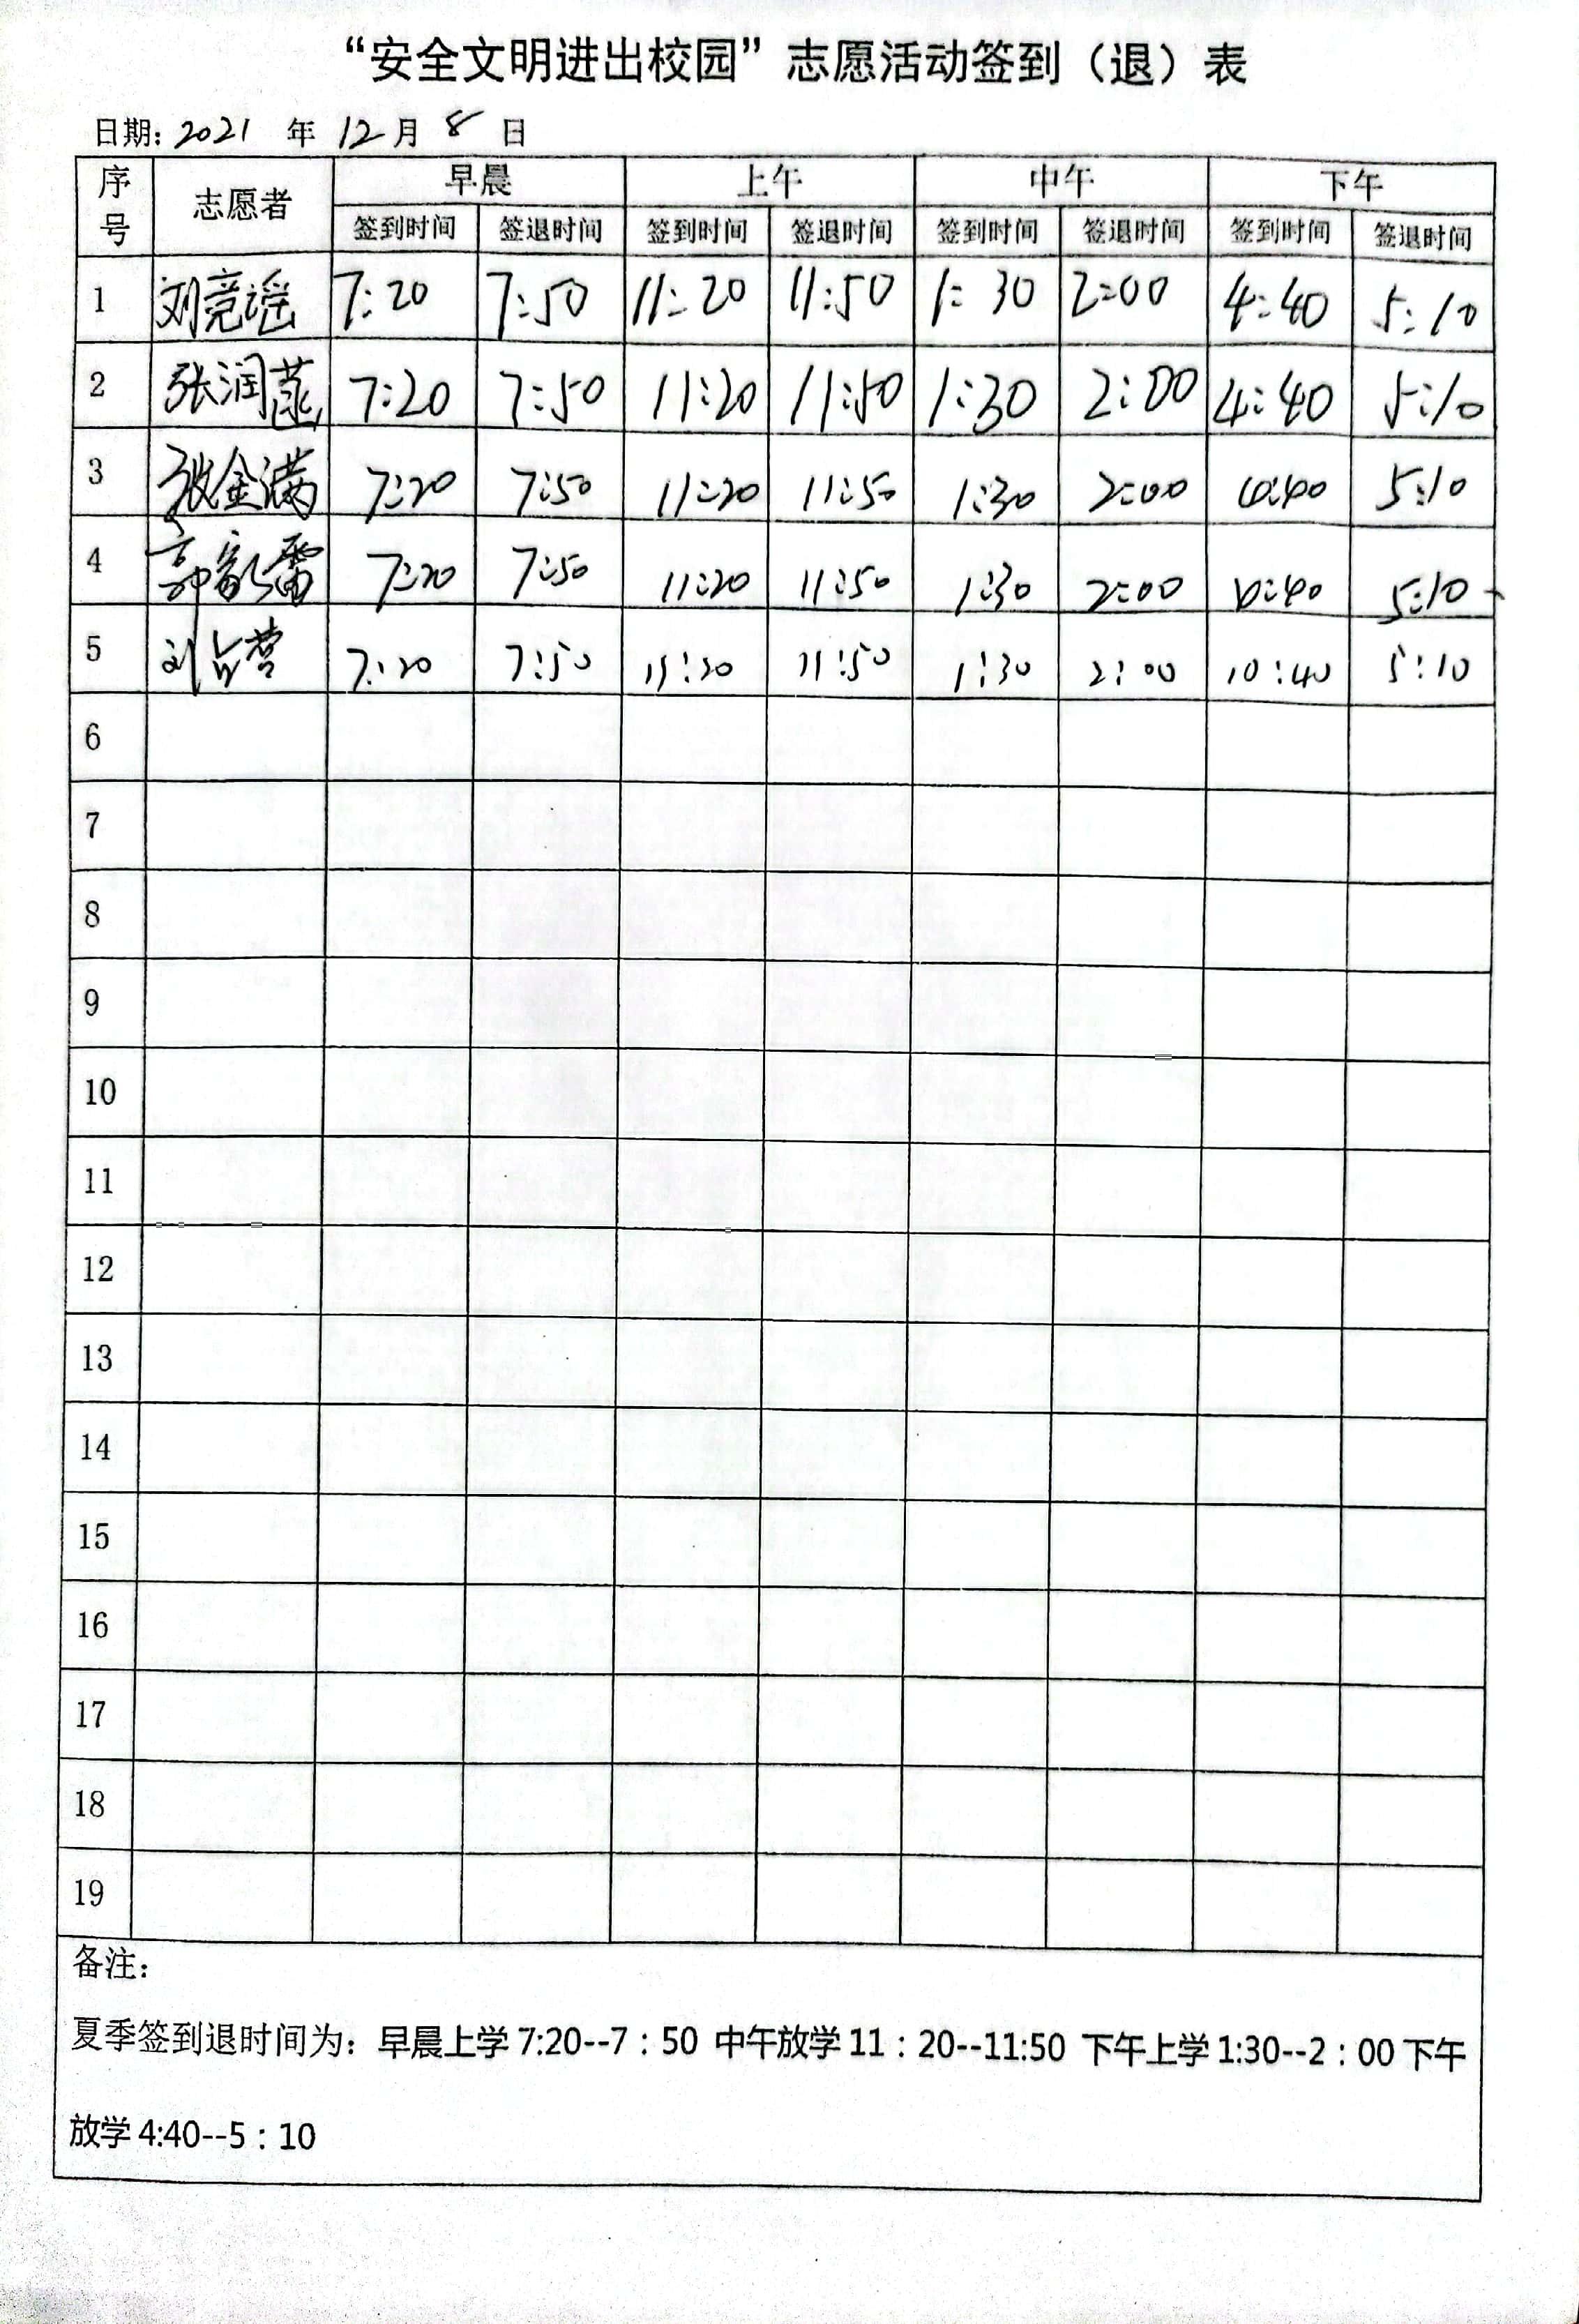 “安全文明进出校园”志愿活动签到（退）表
日期: 2021 年 12 月 8 日
序号 志愿者 早晨 上午 中午 下午
签到时间 签退时间 签到时间 签退时间 签到时间 签退时间 签到时间 签退时间
1 刘竞谣 7:20 7:50 11:20 11:50 1:30 2:00 4:40 5:10
2 张润菡 7:20 7:50 11:20 11:50 1:30 2:00 4:40 5:10
3 张金满 7:20 7:50 11:20 11:50 1:30 2:00 4:40 5:10
4 郭 7:20 7:50 11:20 11:50 1:30 2:00 4:40 5:10
5 刘 7:20 7:50 11:20 11:50 1:30 2:00 10:40 5:10
6
7
8
9
10
11
12
13
14
15
16
17
18
19
备注:
夏季签到退时间为: 早晨上学 7:20--7：50 中午放学 11：20--11:50 下午上学 1:30--2：00 下午
放学 4:40--5：10